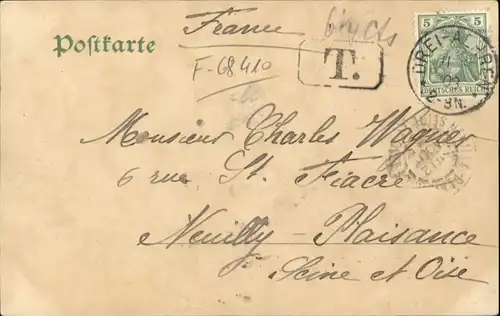 France
5 5
Postkarte
T.
DREI-AEHREN
DEUTSCHES REICH
2-3N.
F-68410
Monsieur Charles Wagner
6 rue St. Fiacre
Neuilly-Plaisance
Seine et Oise